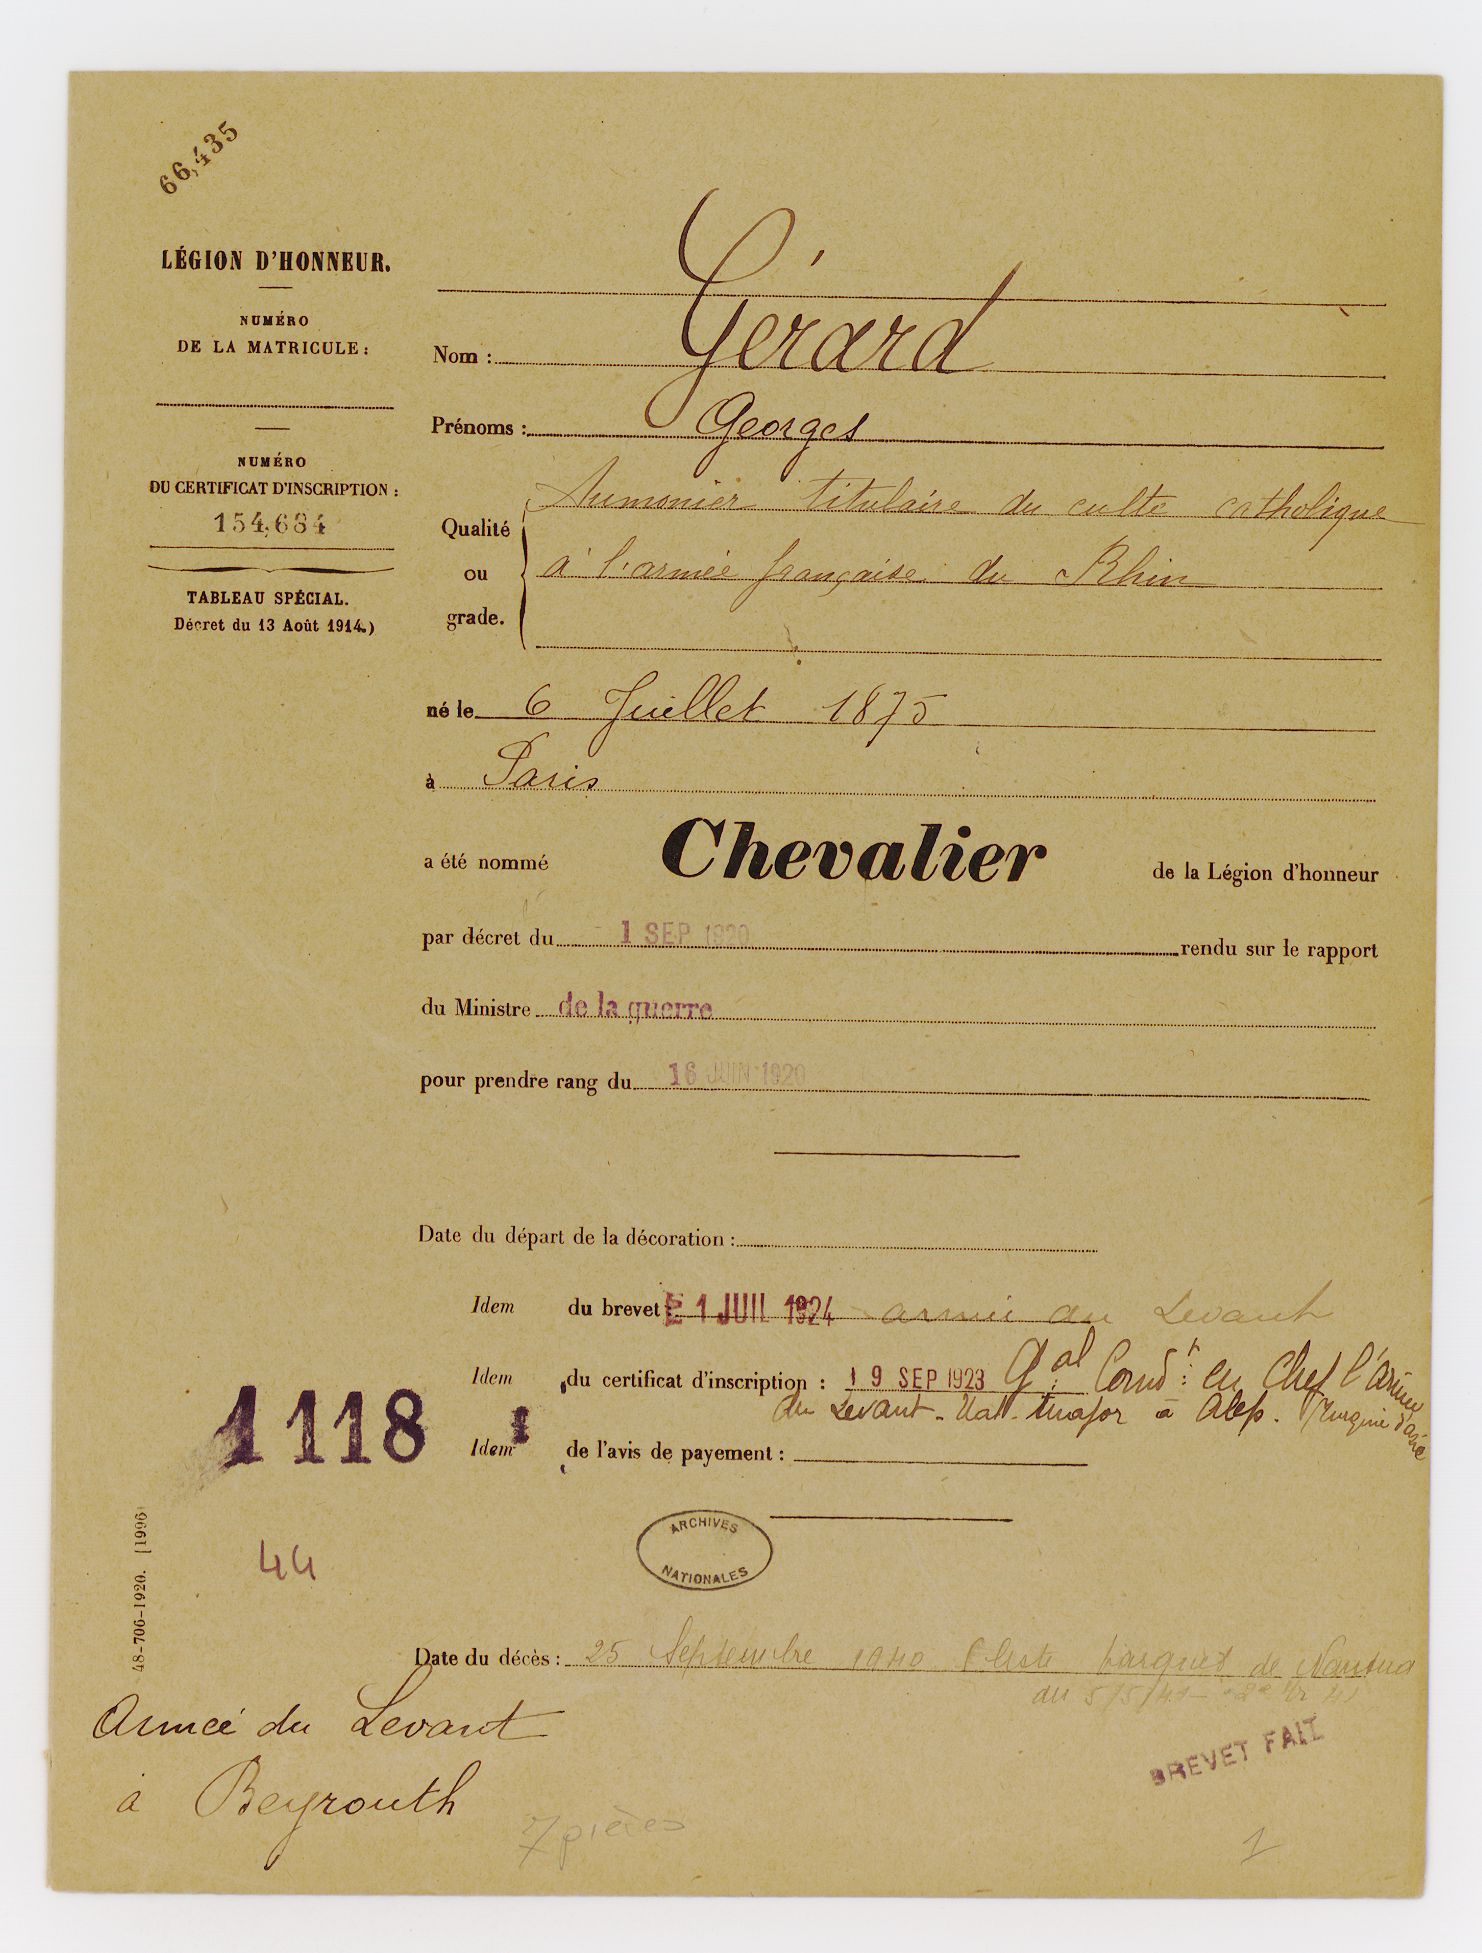 66,435
LÉGION D'HONNEUR.
NUMÉRO
DE LA MATRICULE :
NUMÉRO
DU CERTIFICAT D'INSCRIPTION :
154,684
TABLEAU SPÉCIAL.
Décret du 13 Août 1914.)
Nom : Gérard
Prénoms : Georges
Qualité ou grade. Aumonier titulaire du culte catholique
à l'armée française du Rhin
né le 6 Juillet 1875
à Paris
a été nommé Chevalier de la Légion d'honneur
par décret du 1 SEP 1920 rendu sur le rapport
du Ministre de la guerre
pour prendre rang du 16 JUIN 1920
Date du départ de la décoration :
Idem du brevet : 1 JUIL 1924 armée du Levant
Idem du certificat d'inscription : 19 SEP 1923 Gal Comdt : en Chef l'armée
du Levant - major à Alep. Turquie d'asie
1118
Idem de l'avis de payement :
ARCHIVES
NATIONALES
44
48-706-1920. [1996]
Date du décès : 25 Septembre 1940 parquet de Nantua
du 5/5/41
Armée du Levant
à Beyrouth
BREVET FAIT
7 pièces
1